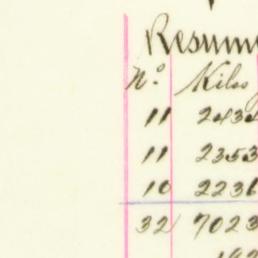 Resum
No. Kilos
11 2434
11 2353
10 2236
32 7023
192